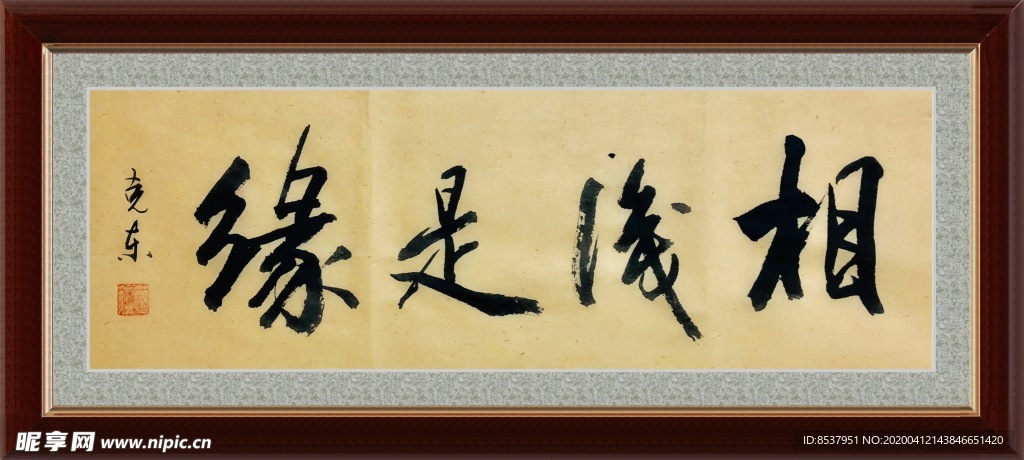 相識是緣
克东
昵享网 www.nipic.cn
ID:8537951 NO:20200412143846651420